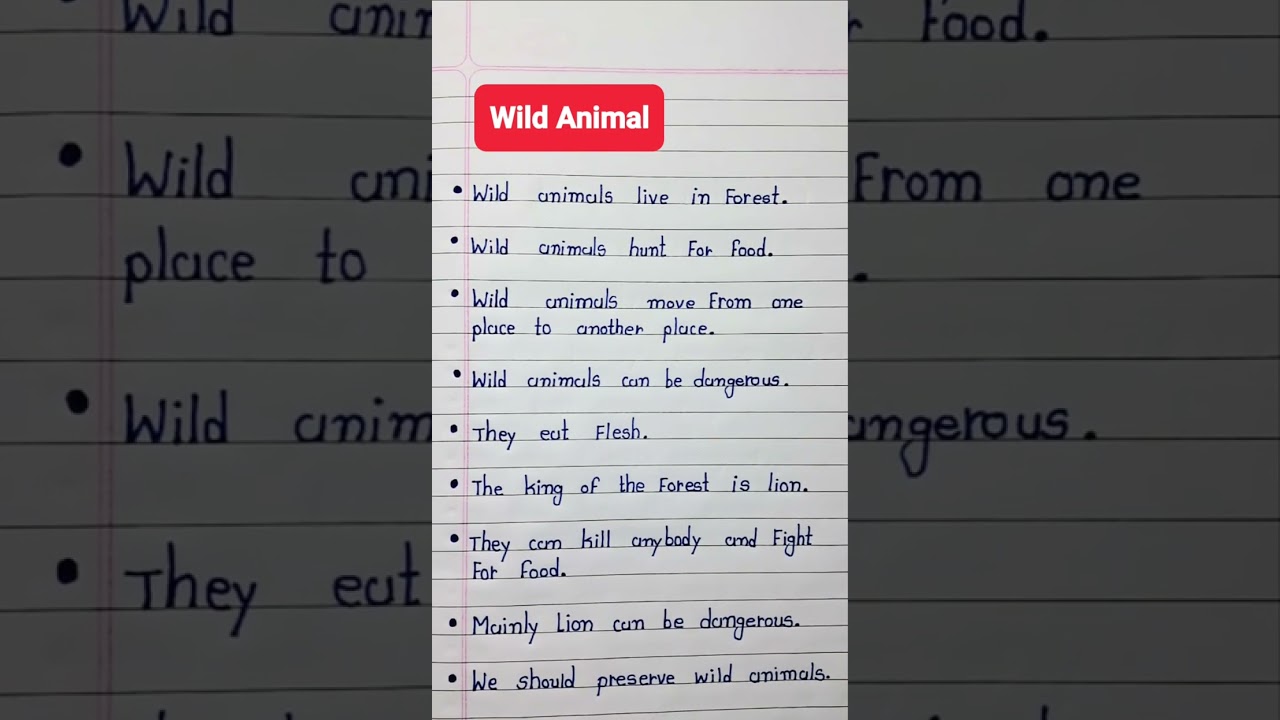 Wild Animal
• Wild animals live in Forest.
• Wild animals hunt For food.
• Wild animals move From one
place to another place.
• Wild animals can be dangerous.
• They eat Flesh.
• The king of the Forest is lion.
• They can kill anybody and Fight
For food.
• Mainly Lion can be dangerous.
• We should preserve wild animals.